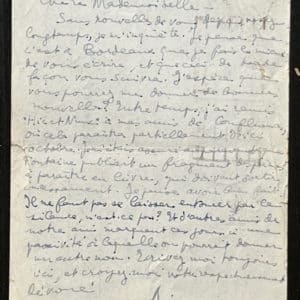 Chère Mademoiselle –
Sans nouvelles de vous depuis
longtemps, je m'inquiète. Je pense que
c'est à Bordeaux que je fais le mieux
de vous écrire, et que ceci de toute
façon vous suivra. J'espère que
vous pourrez me donner de bonnes
nouvelles? Entre temps, j'ai remis
Hic et Nunc à mes amis de Confluences,
où cela paraîtra partiellement d'ici
octobre.
Fontaine publiait un fragment
à paraître en livre, qui devait sortir
incessamment. Je pense avoir bien fait!
Il ne faut pas se laisser enterrer par ce
silence, n'est-ce pas? Et d'autres amis de
notre ami marquent ces jours-ci une
passivité à laquelle on pourrait donner
un autre nom. Écrivez-moi toujours
ici, et croyez-moi votre respectueusement
dévoué